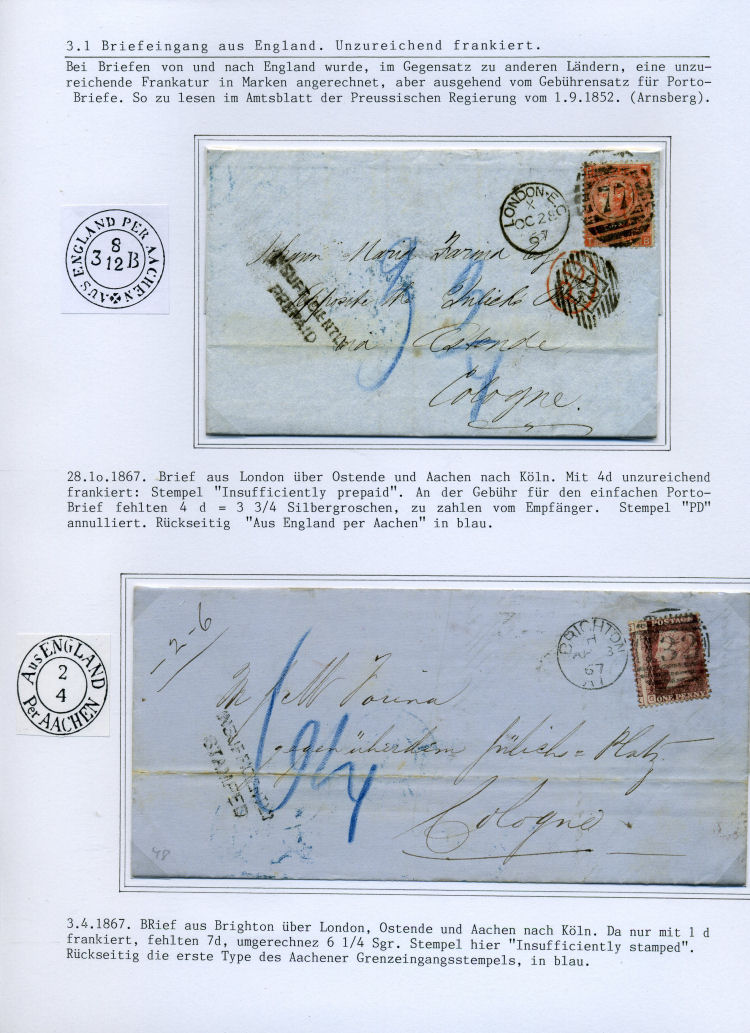 3.1 Briefeingang aus England. Unzureichend frankiert.
Bei Briefen von und nach England wurde, im Gegensatz zu anderen Ländern, eine unzu-
reichende Frankatur in Marken angerechnet, aber ausgehend vom Gebührensatz für Porto-
Briefe. So zu lesen im Amtsblatt der Preussischen Regierung vom 1.9.1852. (Arnsberg).
AUS ENGLAND PER AACHEN
8
3 12 B
LONDON-EC
X
OC 28
67
77
INSUFFICIENTLY
PREPAID
Johann Maria Farina
opposite Jülichs
via Ostende
Cologne.
3 3/4
28.1o.1867. Brief aus London über Ostende und Aachen nach Köln. Mit 4d unzureichend
frankiert: Stempel "Insufficiently prepaid". An der Gebühr für den einfachen Porto-
Brief fehlten 4 d = 3 3/4 Silbergroschen, zu zahlen vom Empfänger. Stempel "PD"
annulliert. Rückseitig "Aus England per Aachen" in blau.
Aus ENGLAND
2
4
Per AACHEN
-2-6
BRIGHTON
H
AP 3
67
POSTAGE
32
ONE PENNY
INSUFFICIENTLY
STAMPED
Farina
gegenüber dem Jülichs=Platz
Cologne
6 1/4
48
3.4.1867. BRief aus Brighton über London, Ostende und Aachen nach Köln. Da nur mit 1 d
frankiert, fehlten 7d, umgerechnez 6 1/4 Sgr. Stempel hier "Insufficiently stamped".
Rückseitig die erste Type des Aachener Grenzeingangsstempels, in blau.